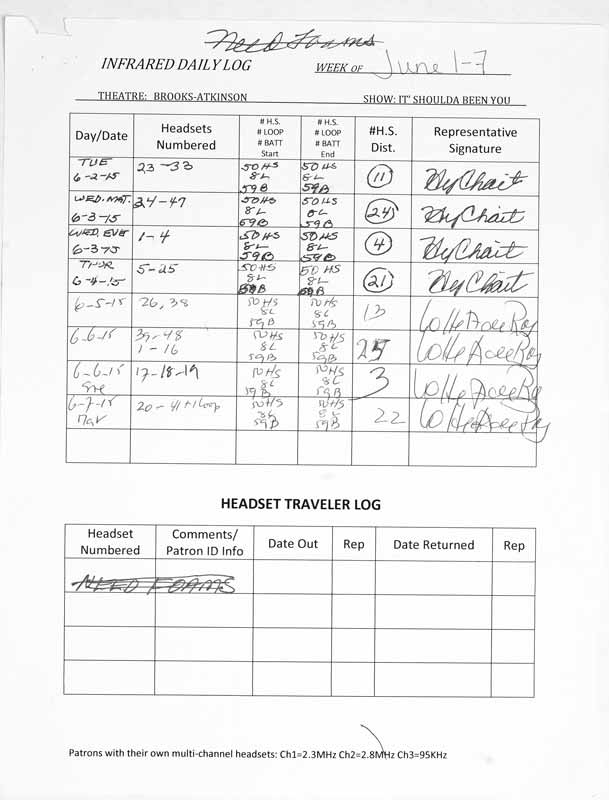 Need Foams
INFRARED DAILY LOG WEEK OF June 1-7
THEATRE: BROOKS-ATKINSON SHOW: IT' SHOULDA BEEN YOU
Day/Date Headsets Numbered # H.S. # LOOP # BATT Start # H.S. # LOOP # BATT End #H.S. Dist. Representative Signature
TUE 6-2-15 23-33 50HS 8L 59B 50HS 8L 59B 11
WED. MAT. 6-3-15 24-47 50HS 8L 59B 50HS 8L 59B 24
WED. EVE 6-3-15 1-4 50HS 8L 59B 50HS 8L 59B 4
THUR 6-4-15 5-25 50HS 8L 59B 50HS 8L 59B 21
6-5-15 26,38 50HS 8L 59B 50HS 8L 59B 13
6-6-15 39-48 1-16 50HS 8L 59B 50HS 8L 59B
6-6-15 Eve 17-18-19 50HS 8L 59B 50HS 8L 59B 3
6-7-15 20-41+1loop 50HS 8L 59B 50HS 8L 59B 22
HEADSET TRAVELER LOG
Headset Numbered Comments/ Patron ID Info Date Out Rep Date Returned Rep
NEED FOAMS
Patrons with their own multi-channel headsets: Ch1=2.3MHz Ch2=2.8MHz Ch3=95KHz